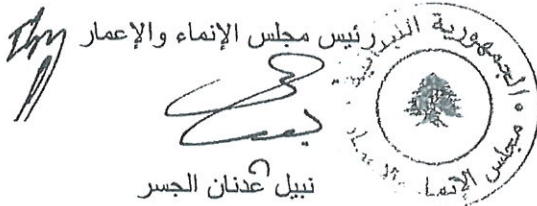 رئيس مجلس الإنماء والإعمار
نبيل عدنان الجسر
الجمهورية اللبنانية
مجلس الإنماء